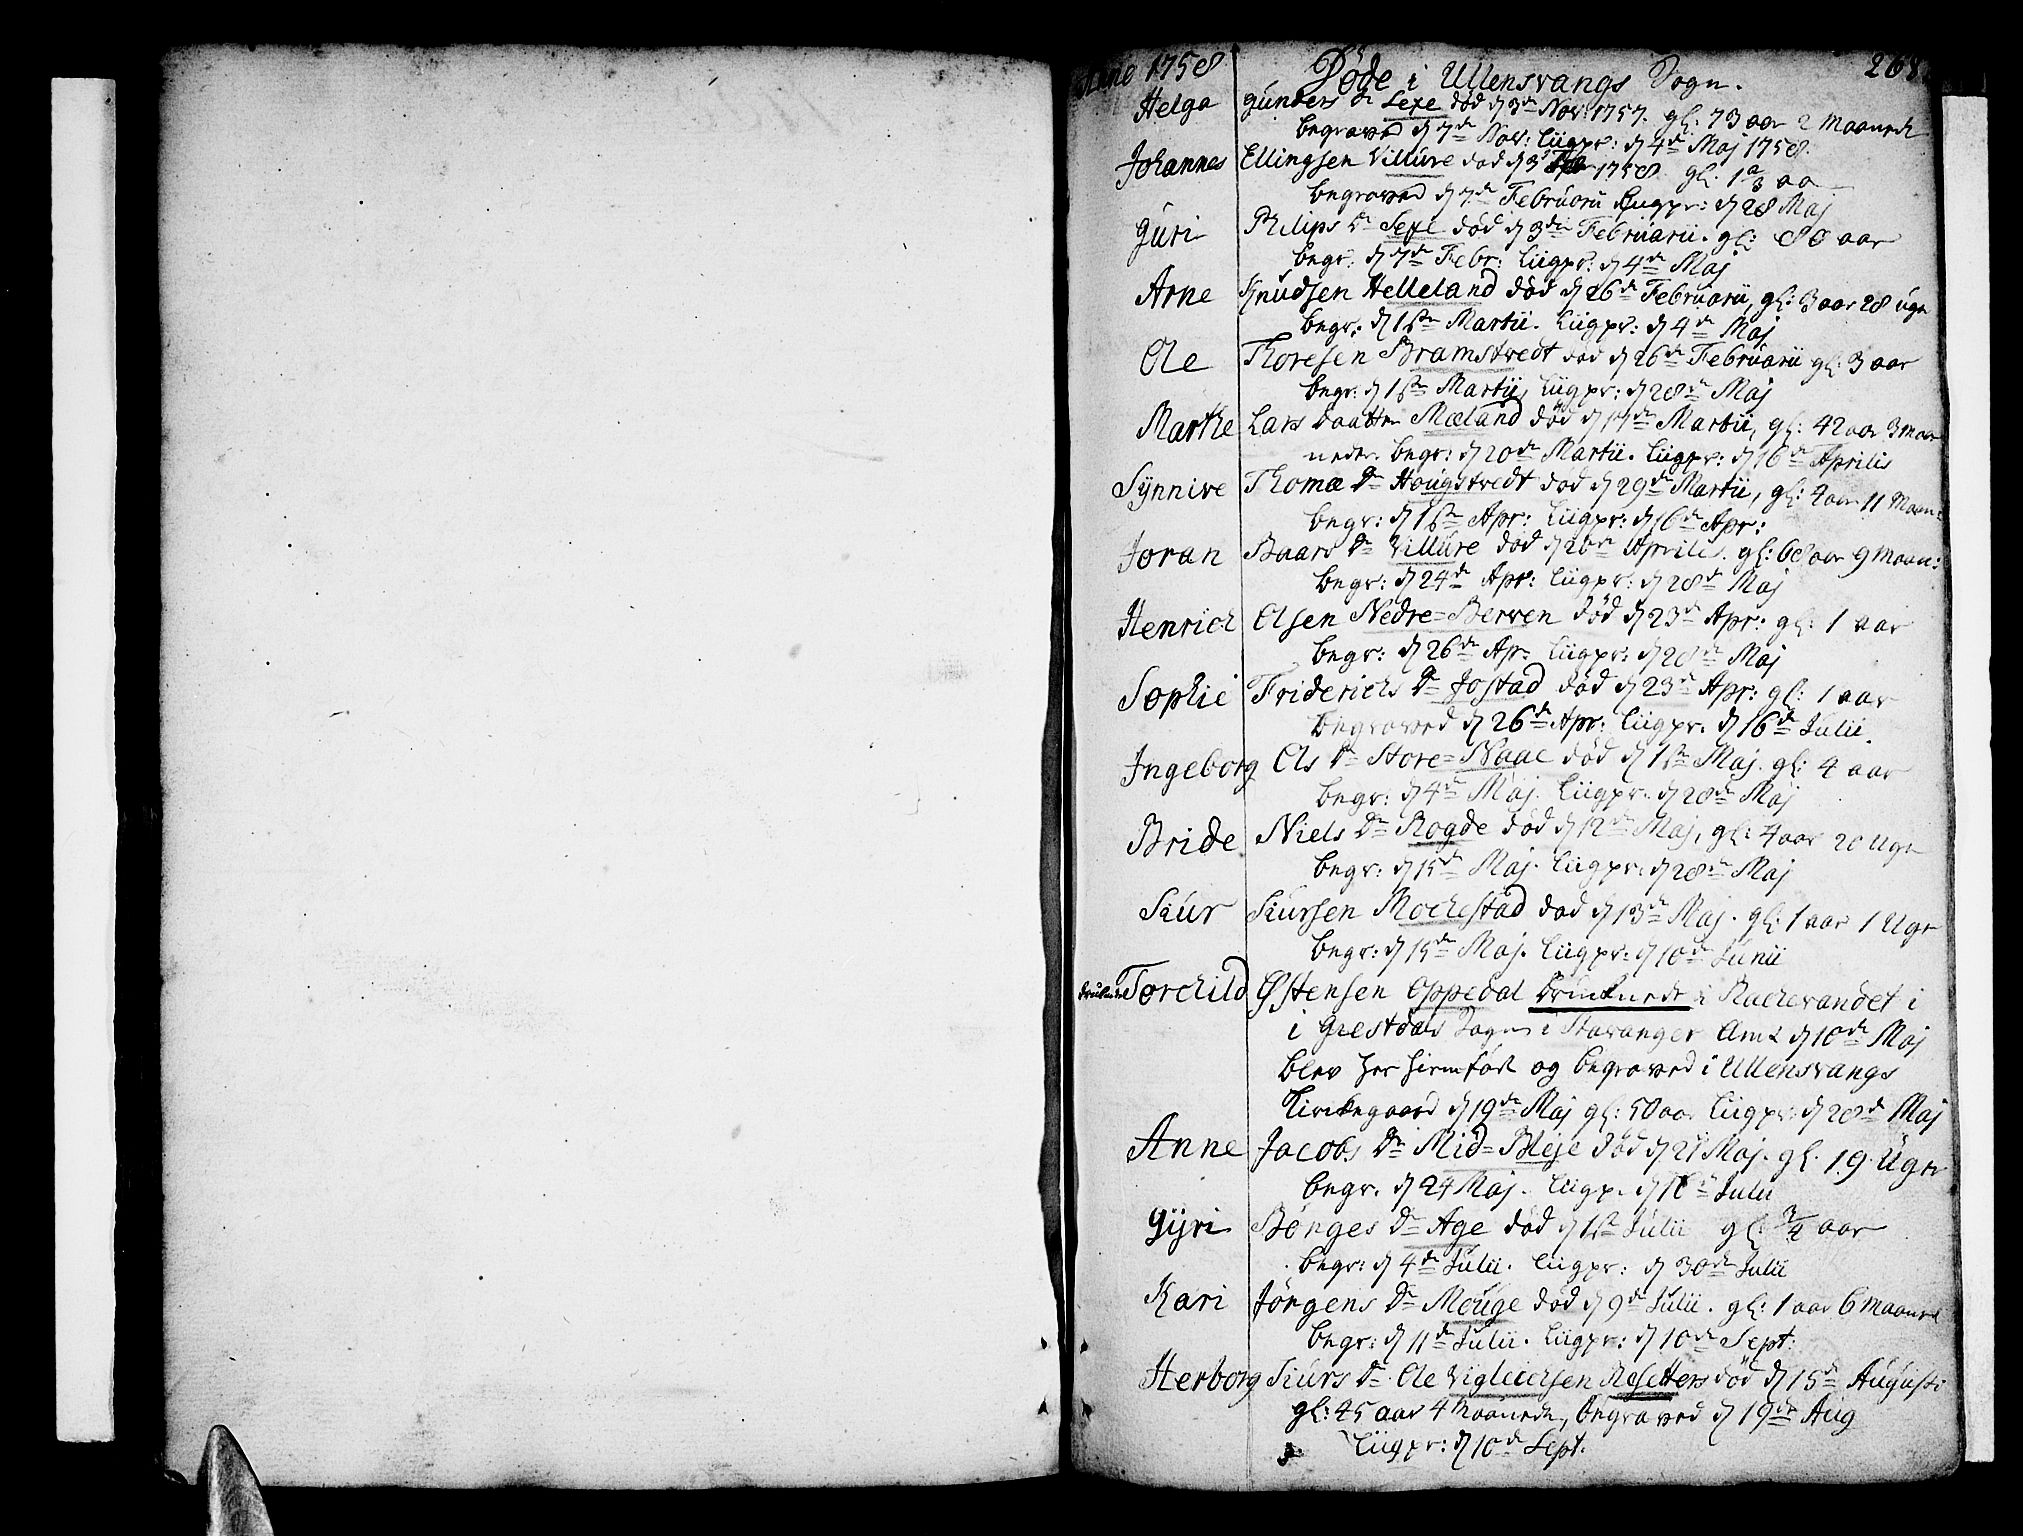 Anno 1758 Døde i Ullensvangs Sogn. 268.
Helga Gunders Dr Sexe død d 3de Nov: 1757. gl: 73 aar 2 Maaneder
begraved d 7de Nov: Liigpr: d 4de Maj 1758.
Johannes Ellingsen Villure død d 3 1758. gl.
begraved d 7de Februarii Liigpr: d 28 Maj
Guri Philips Dr Sexe død d 3die Februarii. gl: 80 aar
begr: d 7de Febr: Liigpr: d 4de Maj
Arne Knudsen Helleland død d 26de Februarii, gl: 3 aar 28 Uger
begr: d 1ste Martii. Liigpr: d 4de Maj
Ole Thoresen Bramstvedt død d 26de Februarii gl: 3 aar
begr: d 1ste Martii, Liigpr: d 28de Maj
Marthe Lars Daatter Mæland død d 17de Martii, gl: 42 aar 3 Maa-
neder. begr: d 20de Martii. Liigpr: d 16de Aprilis
Synnive Thomæ Dr Hougstvedt død d 29de Martii, gl: 4 aar 11 Maan:
begr: d 1ste Apr: Liigpr: d 16de Apr:
Joran Baars Dr Villure død d 20de Aprilis. gl: 68 aar 9 Maan:
begr: d 24de Apr: Liigpr: d 28de Maj
Henrich Olsen Nedre=Berven død d 23de Apr: gl: 1 aar
begr: d 26de Apr: Liigpr: d 28de Maj
Sophie Friderichs Dr Jostad død d 23de Apr: gl: 1 aar
begraved d 26de Apr: Liigpr. d 16de Julii.
Ingeborg Ols Dr Store=Naae død d 1ste Maj. gl: 4 aar
begr: d 4de Maj. Liigpr: d 28de Maj
Bride Niels Dr Rogde død d 12de Maj, gl: 4 aar 20 Uger
begr: d 15de Maj. Liigpr: d 28de Maj
Siur Siursen Rochestad død d 13de Maj. gl: 1 aar 1 Uge
begr: d 15de Maj. Liigpr: d 10de Junii
druknede Torchild Østensen Oppedal druknede i Rachevandet i
i Giestdals Sogn i Stavanger Amt d 10de Maj
blev her hiemført og begraved i Ullensvangs
Kirckegaard d 19de Maj gl: 50 aar Liigpr: d 28de Maj
Anne Jacobs Dr Mid=Bleje død d 21 Maj. gl. 19 Uger
begr. d 24 Maj. Liigp. d 16de Julii
Gyri Børges Dr Age død d 1ste Julii gl: 3/4 aar
begr: d 4de Julii. Liigpr: d 30de Julii
Kari Jørgens Dr Mouge død d 9de Julii. gl: 1 aar 6 Maaneder
begr: d 11de Julii. Liigpr: d 10de Sept:
Herborg Siurs Dr Ole Vigleichsen Rosetters død d 15de Augusti
gl: 45 aar 4 Maaneder, begraved d 19de Aug
Liigpr: d 10de Sept.